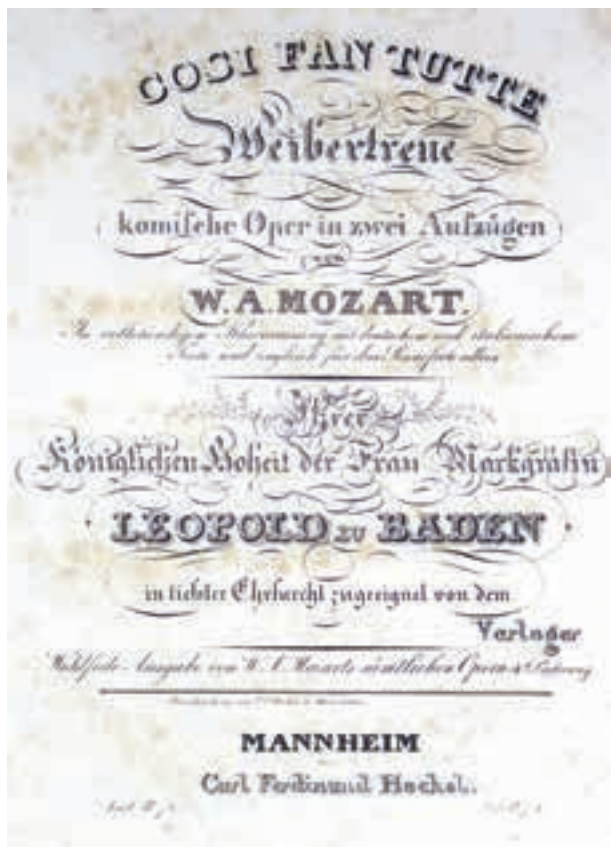 COSI FAN TUTTE
Weibertreue
komische Oper in zwei Aufzügen
von
W. A. MOZART.
In vollständigem Clavierauszug mit deutschem und italienischem
Texte und zugleich für das Pianoforte allein
Ihrer
Königlichen Hoheit der Frau Markgräfin
LEOPOLD ZU BADEN
in tiefster Ehrfurcht zugeeignet von dem
Verleger
Wohlfeile Ausgabe von W. A. Mozarts sämtlichen Opern 4te Lieferung
MANNHEIM
Carl Ferdinand Heckel.